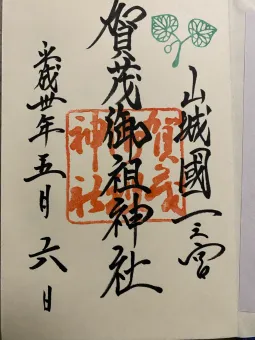 山城國一之宮
賀茂御祖神社
平成卅年五月六日
賀茂
神社